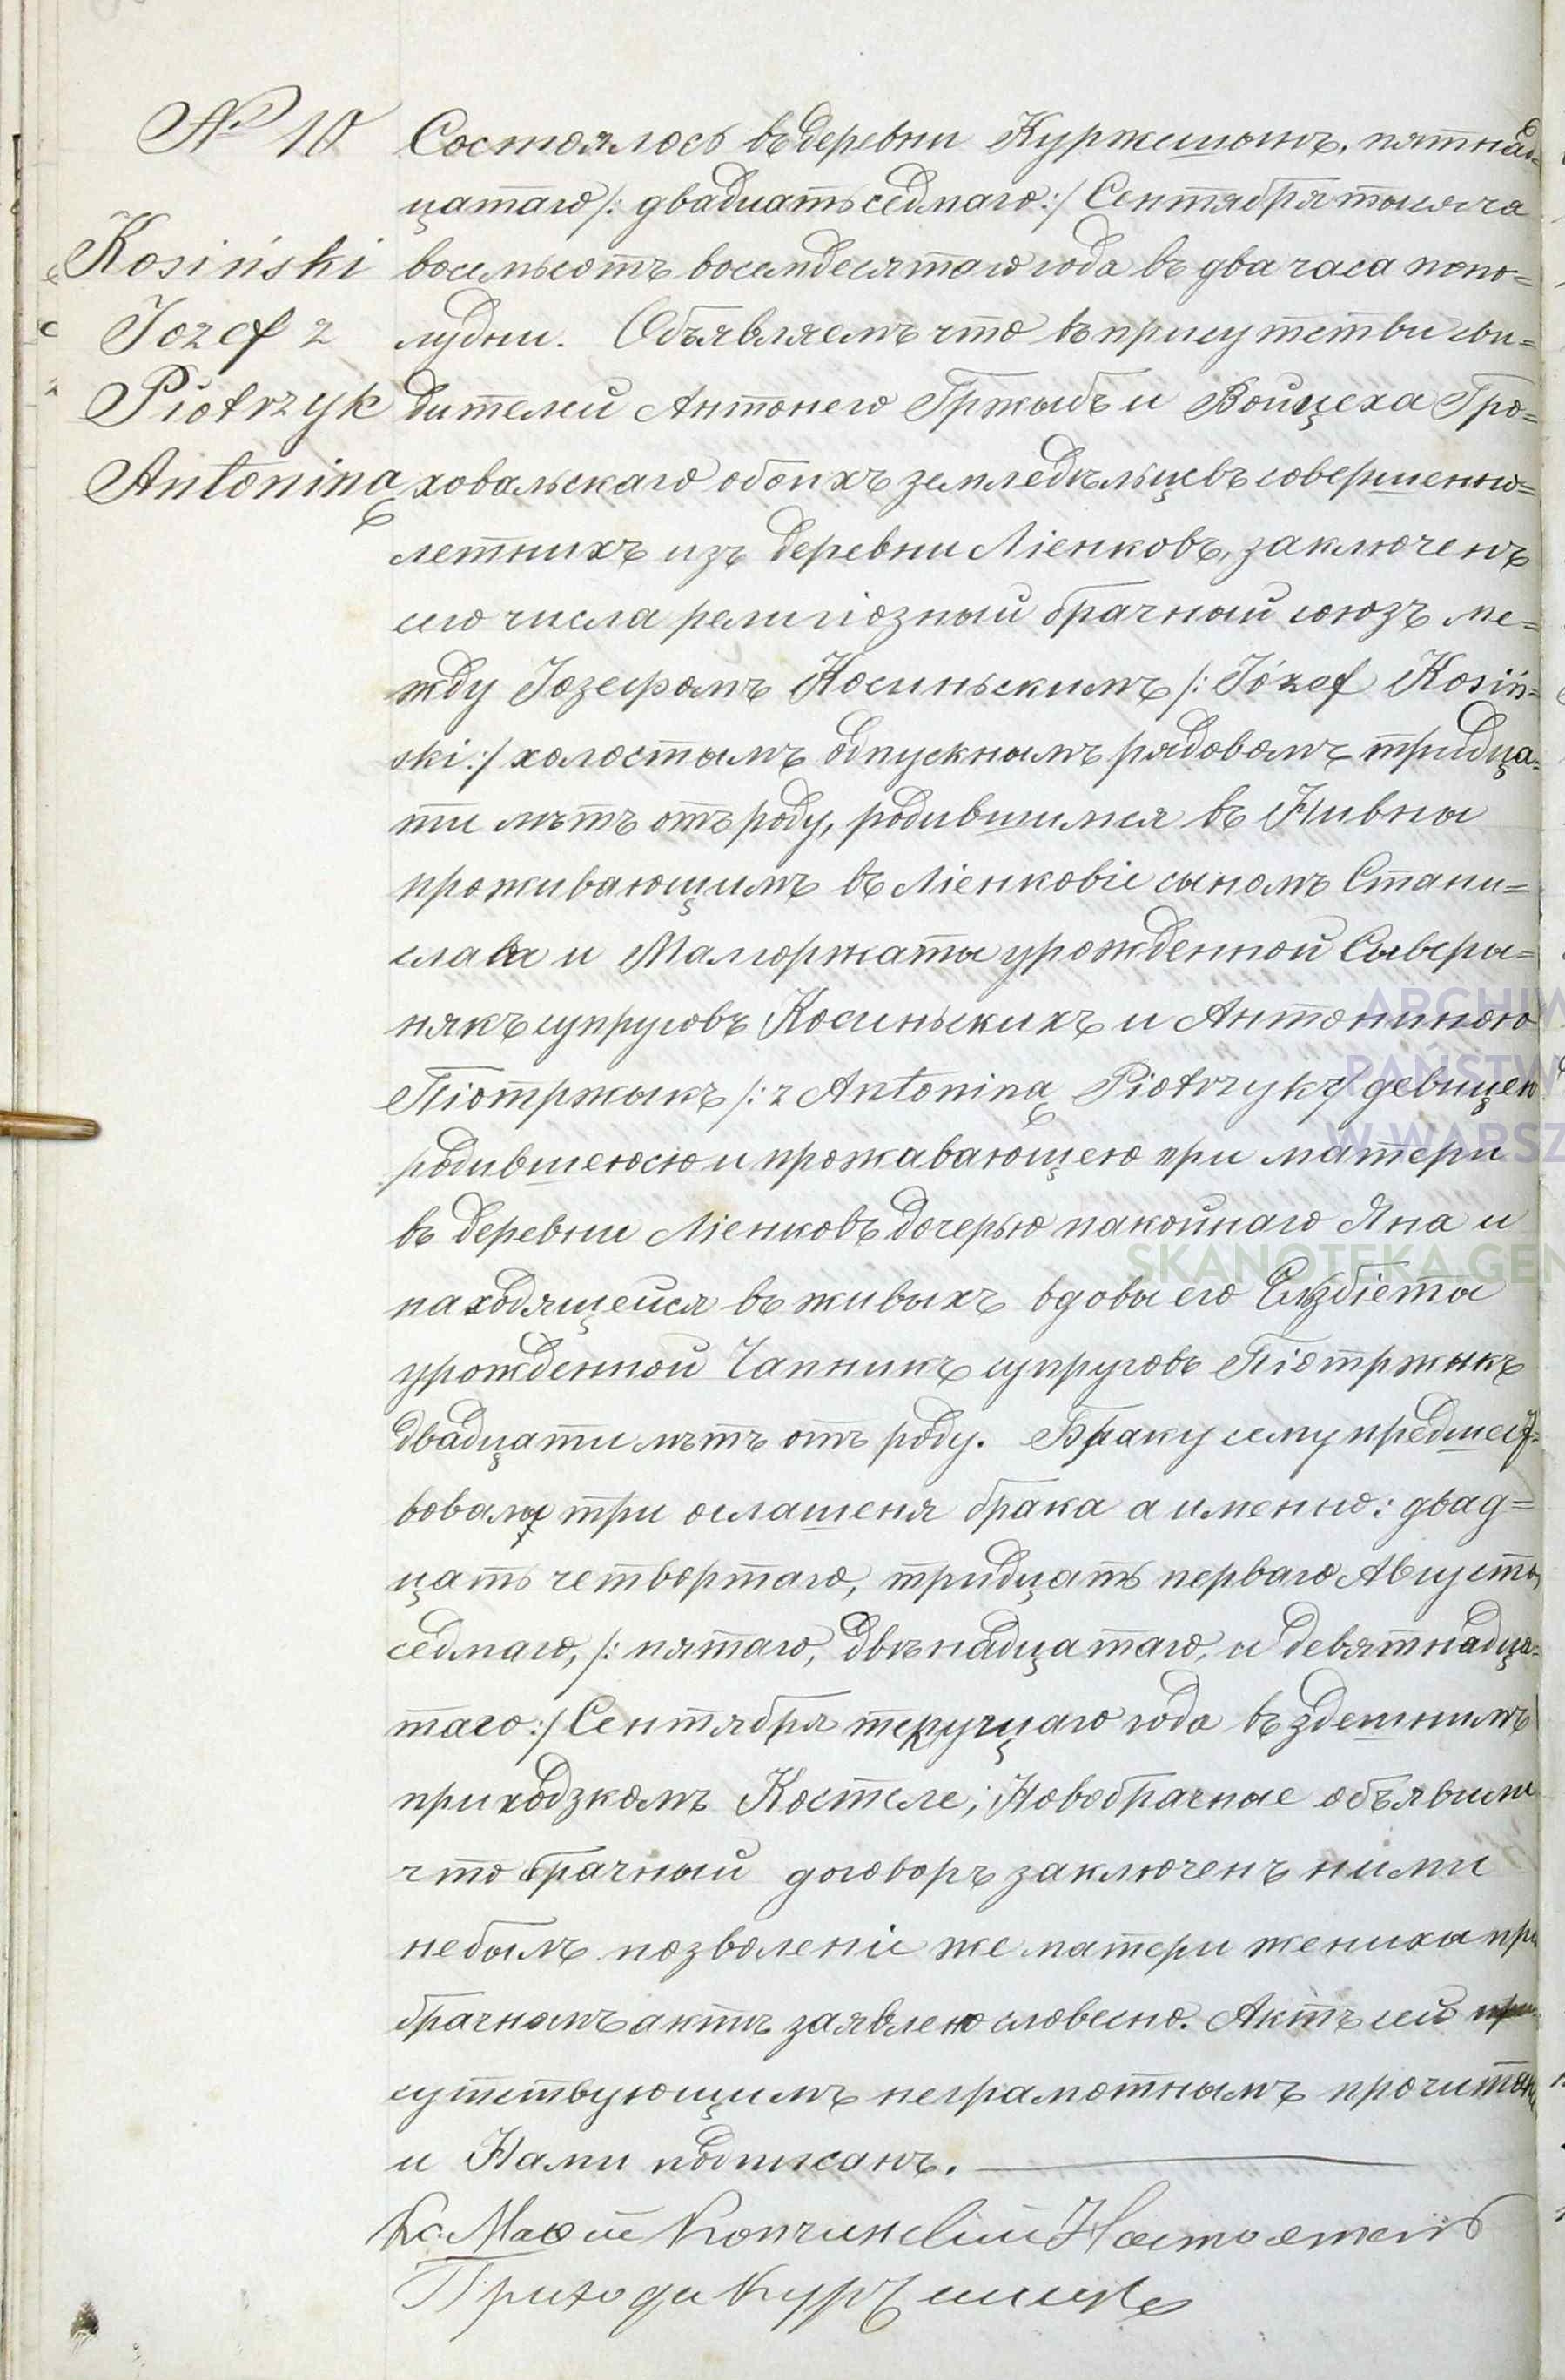 № 10
Kosiński
Jozef z
Piotrzyk
Antoniną
Состоялось въ деревни Куржешинъ, пятнад=
цатаго /: двадцать седмаго :/ Сентября тысяча
восемьсотъ восемдесятаго года въ два часа попо=
лудни. Объявляемъ что въ присутстви сви=
дителей Антонего Гржыбъ и Войцеха Гро=
ховальскаго обоихъ земледѣльцевъ совершенно=
летнихъ изъ деревни Ліенковъ, заключенъ
сего числа религіозный брачный союзъ ме=
жду Іозефомъ Косиньскимъ /: Józef Kosiń=
ski :/ холостымъ одпускнымъ рядовомъ тридца=
ти лѣтъ отъ роду, родившимся въ Нивны
проживающимъ въ Ліенковіе сыномъ Стани=
слава и Малгоржаты урожденной Сывери=
някъ супруговъ Косиньскихъ и Антониною
Піотржыкъ /: z Antoniną Piotrzyk :/ девицею
родившеюсю и прожавающею при матери
въ деревни Ліенковъ дочерью пакойнаго Яна и
находящейся въ живыхъ вдовы его Елзбіеты
урожденной Чапникъ супруговъ Піотржыкъ
двадцати лѣтъ отъ роду. Браку сему предшест=
вовалы три оглашеня брака а именно: двад=
цать четвортаго, тридцать перваго Августа
седмаго, /: пятаго, двѣнадцатаго, и девятнадца=
таго :/ Сентября текущаго года въ здешнимъ
приходзкомъ Костеле; Новобрачные объявили
что брачный договоръ заключенъ ними
небылъ позволеніе же матери женихы при
брачномъ актѣ заявлено словесно. Актъ сей при=
сутствующимъ неграмотнымъ прочитанъ
и Нами подписанъ.
Кс. Настоятель
Прихода